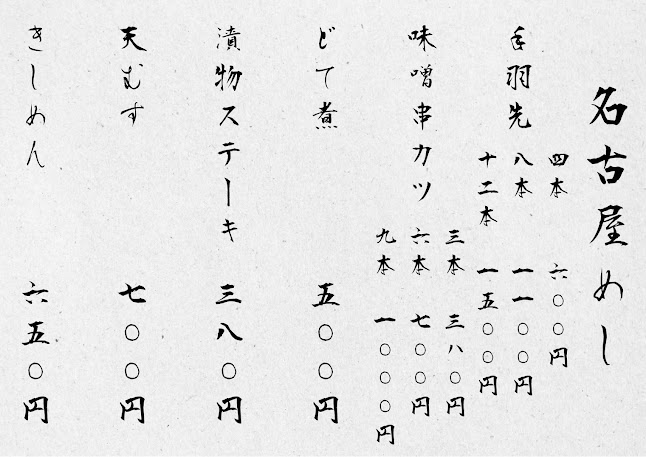 名古屋めし
手羽先
四本 六〇〇円
八本 一一〇〇円
十二本 一五〇〇円
味噌串カツ
三本 三八〇円
六本 七〇〇円
九本 一〇〇〇円
どて煮 五〇〇円
漬物ステーキ 三八〇円
天むす 七〇〇円
きしめん 六五〇円